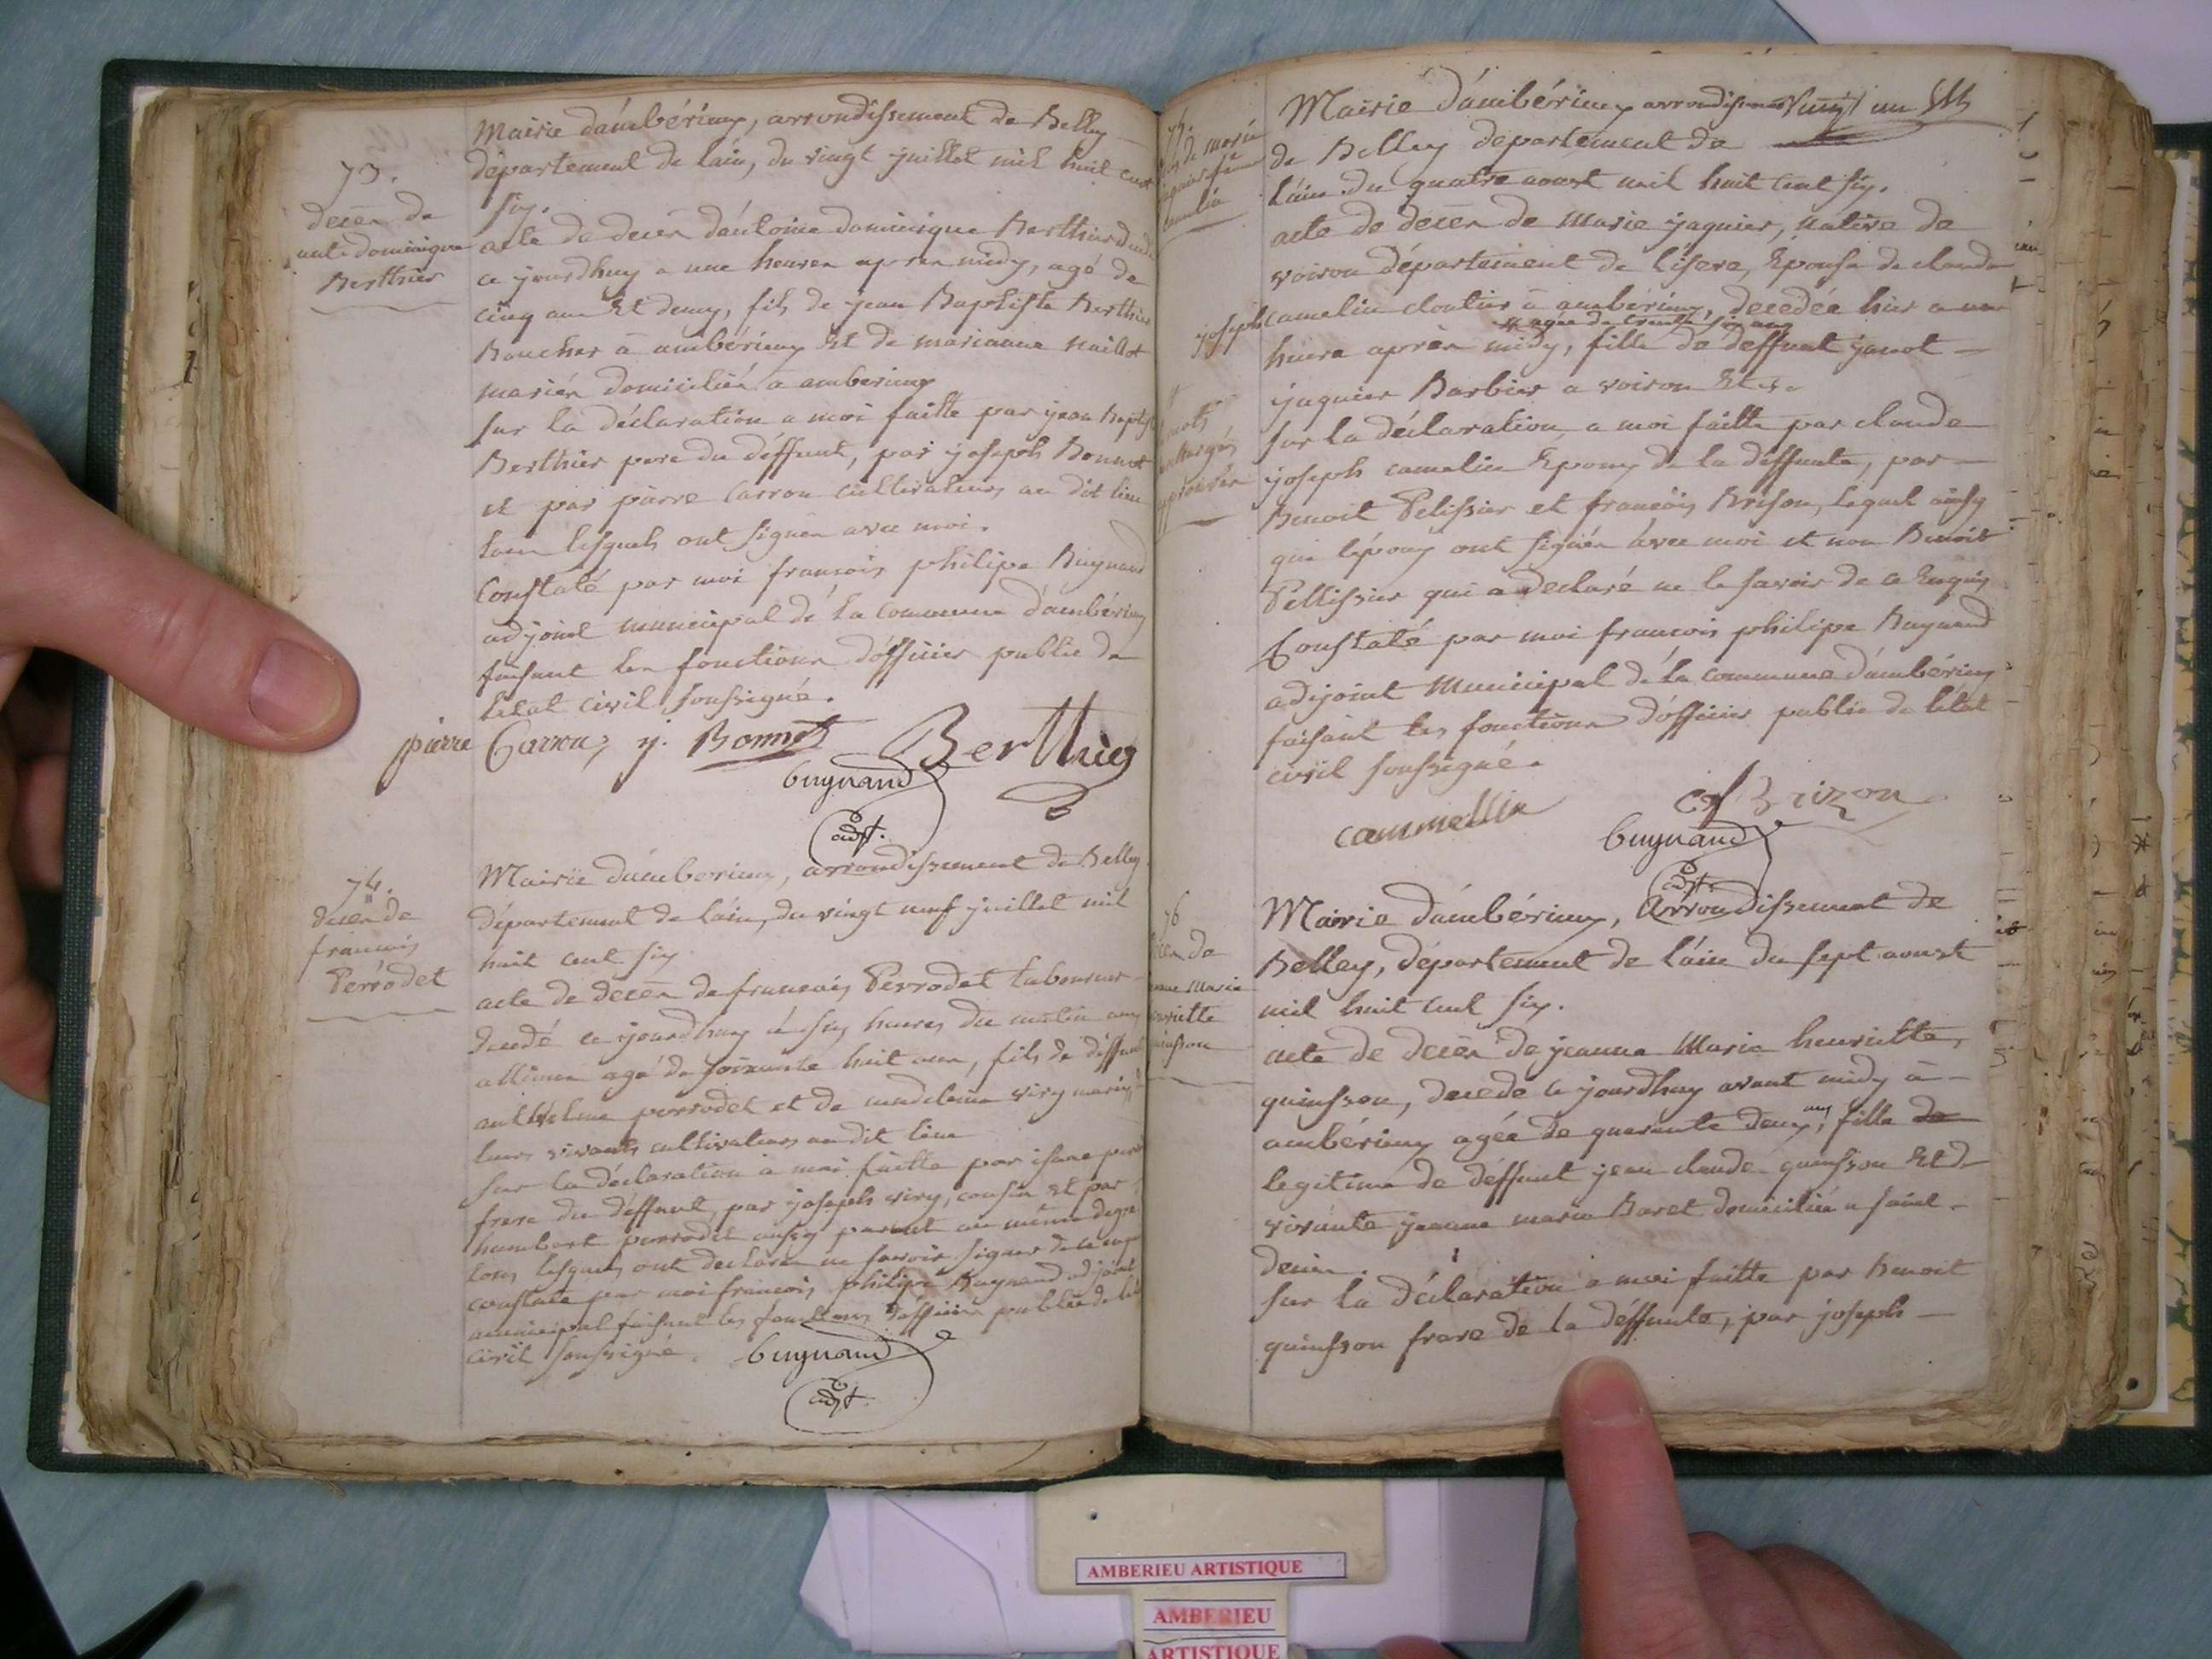 73.
decèn de
anto dominique
Berthier
Mairie d'ambérieux, arrondissement de Belley
département de l'ain, du vingt juillet mil huit cent
six.
acte de decèn d'antoine dominique Berthier
ce jourdhuy a une heuren apren midy, agé de
cinq ans et demy, fils de jean Baptiste Berthier
Boucher à ambérieux Et de marianne
mariér domiciliér à amberieux
sur la déclaration a moi faitte par jean Baptiste
Berthier pere du déffunt, par joseph Bonnet
et par pierre Carron cultivateurs au dit lieu
lesquels ont signén avec moi.
Constaté par moi francois philipe Bugnand
adjoint municipal de la commune d'ambérieux
faisant les fonctions d'officier public de
letat civil soussigné.
pierre Carron, j. Bonnet Berthier
bugnand
adjt.
74.
decèn de
francois
Perrodet
Mairie d'amberieux, arrondissement de Belley
département de l'ain, du vingt neuf juillet mil
huit cent six
acte de decèn de francois Perrodet laboureur
decedé ce jourdhuy à six heures du matin
agé de soixante huit ans, fils de déffunt
anthelme perrodet et de viry
leurs vivants cultivateurs au dit lieu
sur la déclaration à moi faitte par
frere du déffunt, par joseph viry, cousin et par
humbert perrodet aussy parent au même degré
tous lesquels ont declaré ne savoir signer de ce
constaté par moi francois philipe Bugnand adjoint
municipal faisant les fonctions d'officier public de
civil soussigné. bugnand
adjt.
75.
de marie
femme
joseph
mots
Mairie d'ambérieux arrondissement Vingt un
de Belley departement de
l'ain du quatre aoust mil huit cent six.
acte de decèn de marie jaquier, native de
voiron département de l'isere, Epouse de claude
camelin cloutier à ambérieux, decedée hier a une
agée de trente six ans
heure aprèn midy, fille de deffunt
jaquier Barbier a voiron
sur la déclaration a moi faitte par claude
joseph camelin Epoux de la déffunte, par
Benoit Pelissier et francois Brison, lequel ainsy
que l'époux ont signén avec moi et non Benoit
Pellissier qui a declaré ne le savoir de ce Enquis
Constaté par moi francois philipe Bugnand
adjoint Municipal de la commune d'ambérieux
faisant les fonctions d'officier public de letat
civil soussigné.
cammellin Brizon
bugnand
adjt.
76
de
Marie
quinsson
Mairie d'ambérieux, arrondissement de
Belley, département de l'ain du sept aoust
mil huit cent six.
acte de decèn de jeanne Marie henriette
quinsson, decede ce jourdhuy avant midy à
ambérieux agée de quarante deux ans, fille de
legitime de déffunt jean claude quinsson Et de
vivante jeanne marie Baret domiciliée a saint
denis.
sur la déclaration a moi faitte par Benoit
quinsson frere de la déffunte, par joseph
AMBERIEU ARTISTIQUE
AMBERIEU
ARTISTIQUE